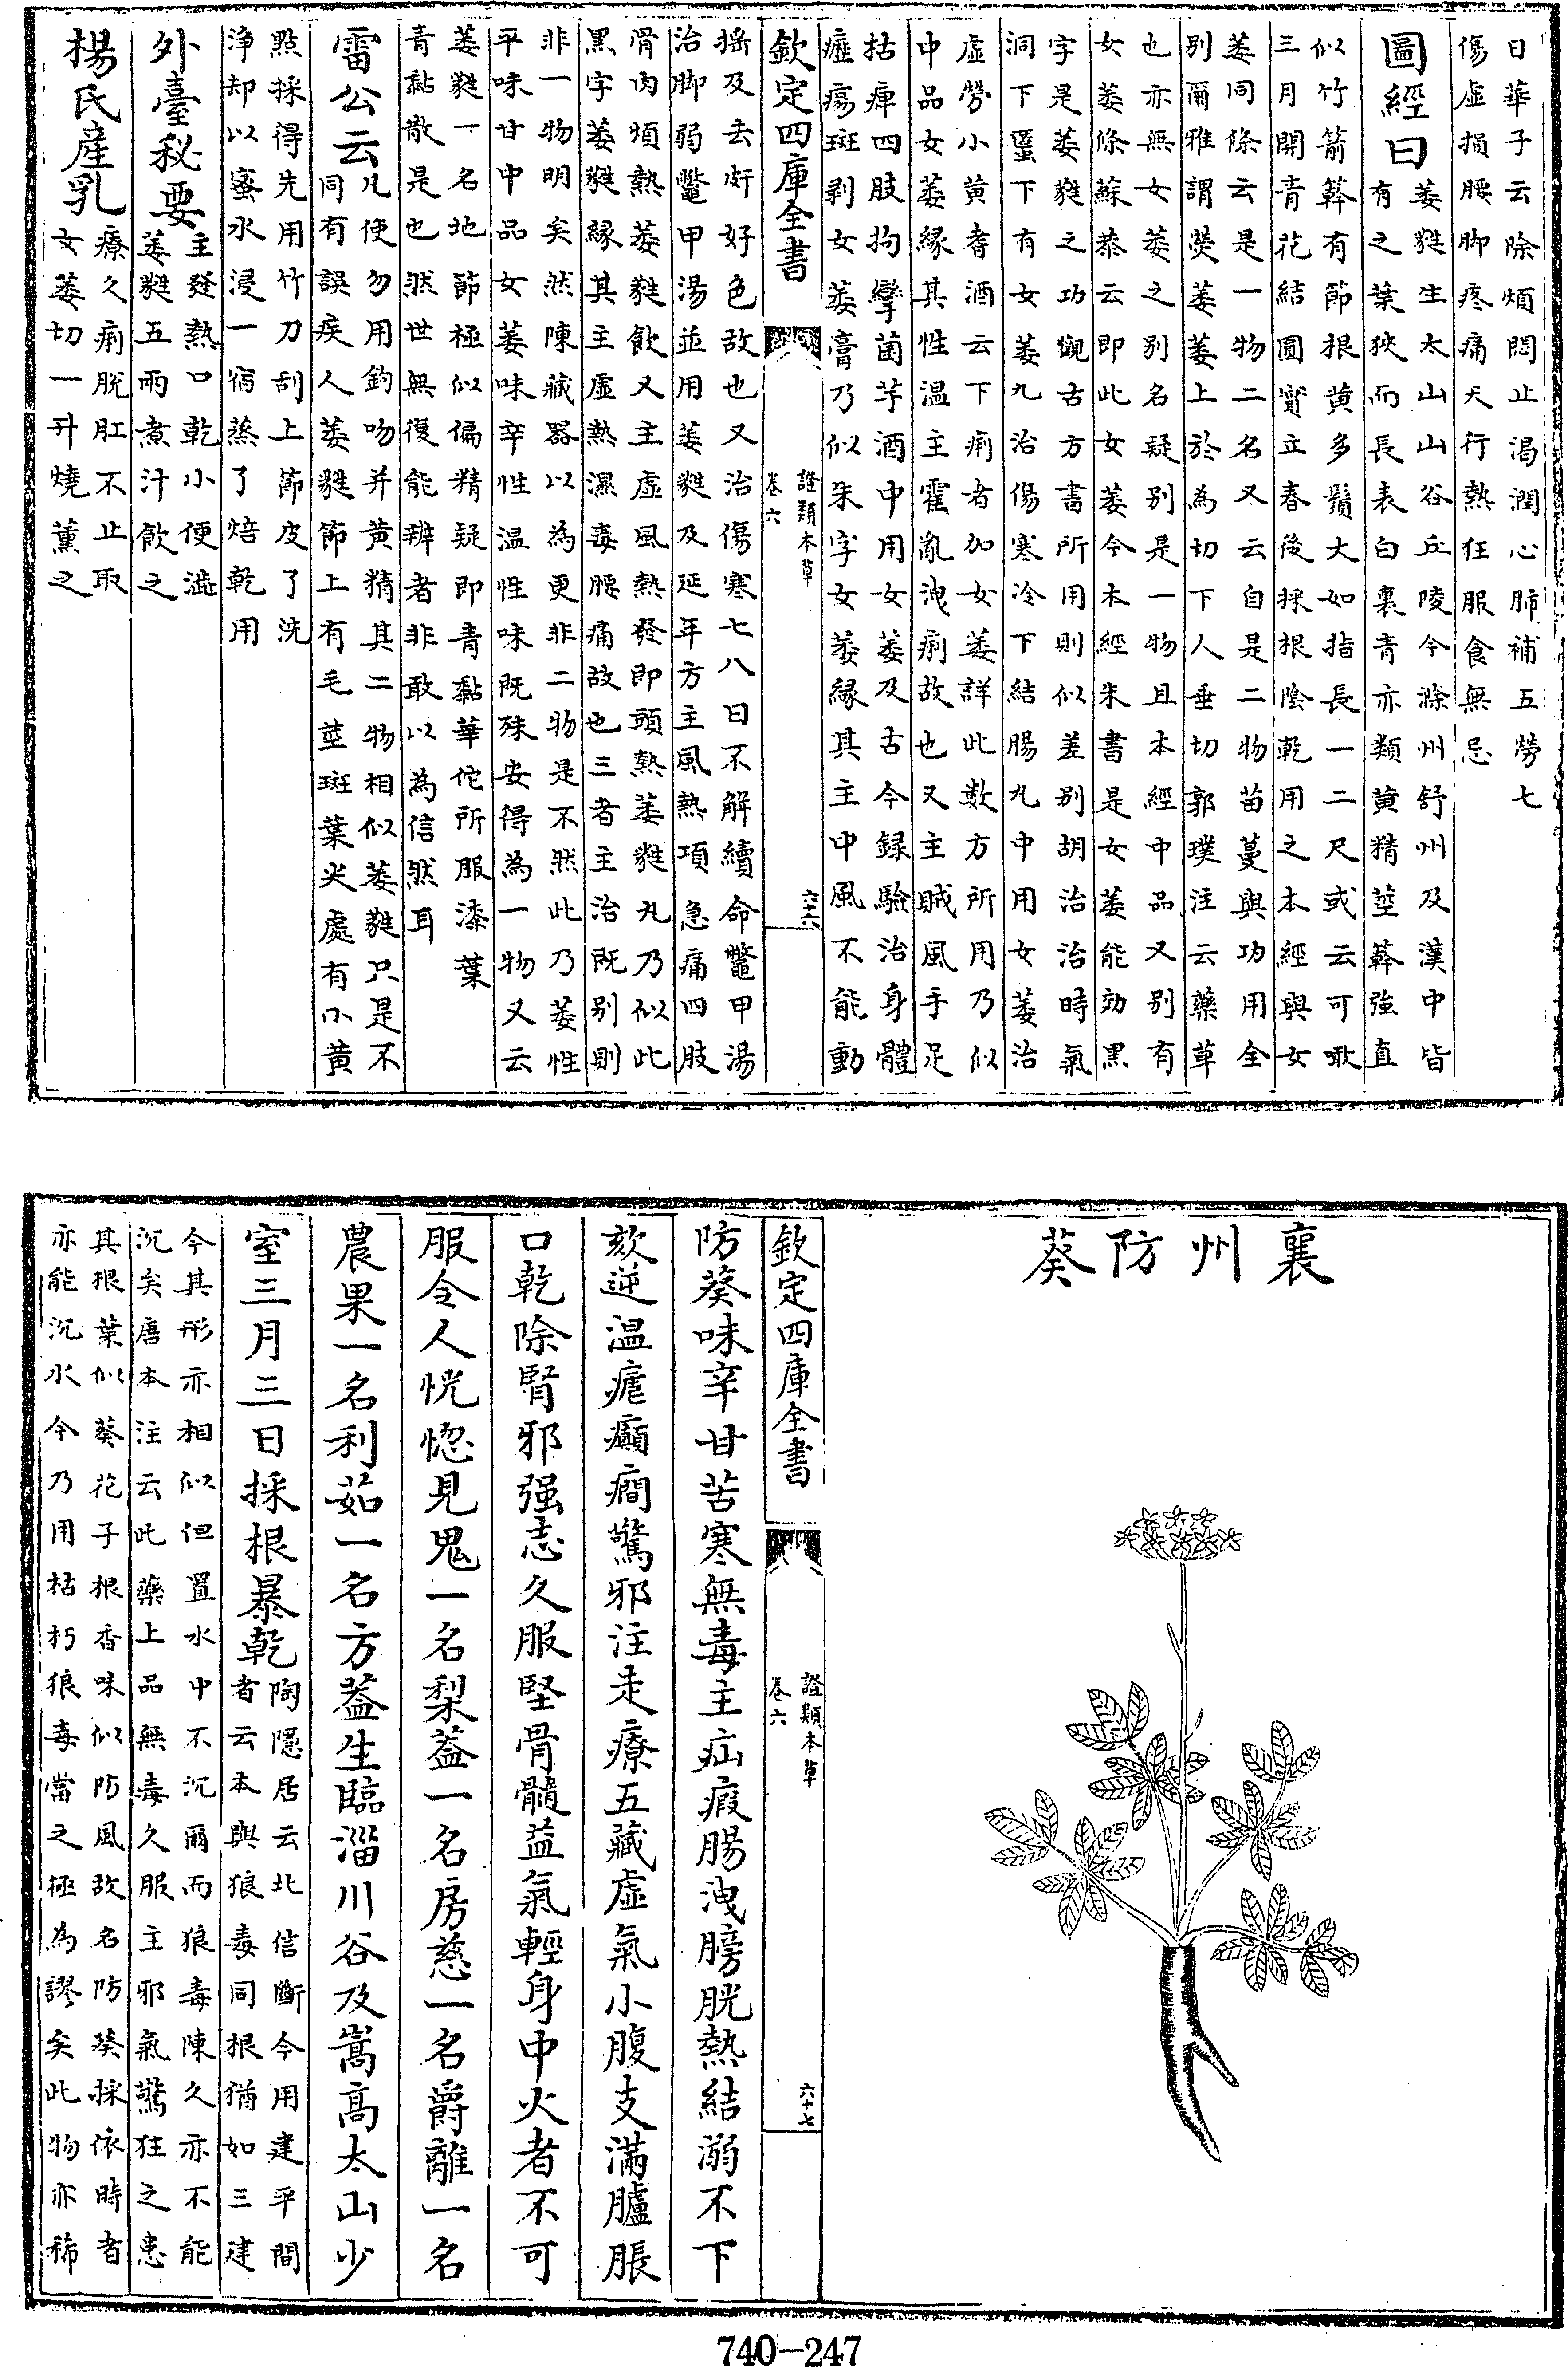 日華子云除煩悶止渴潤心肺補五勞七
傷虛損腰脚疼痛天行熱狂服食無忌
圖經曰
萎蕤生太山山谷丘陵今滁州舒州及漢中皆
有之葉狹而長表白裏青亦類黄精莖簳強直
似竹箭簳有節根黄多鬚大如指長一二尺或云可啖
三月開青花結圓實立春後採根陰乾用之本經與女
萎同條云是一物二名又云自是二物苗蔓與功用全
别爾雅謂熒萎萎上於為切下人垂切郭璞注云藥草
也亦無女萎之别名疑别是一物且本經中品又别有
女萎條蘇恭云即此女萎今本經朱書是女萎能効黑
字是萎蕤之功觀古方書所用則似差别胡治治時氣
洞下䘌下有女萎丸治傷寒冷下結腸丸中用女萎治
虛勞小黄耆酒云下痢者加女萎詳此數方所用乃似
中品女萎縁其性温主霍亂洩痢故也又主賊風手足
枯痺四肢拘攣茵芋酒中用女萎及古今録驗治身體
癧瘍斑剥女萎膏乃似朱字女萎縁其主中風不能動
欽定四庫全書
證類本草
卷六
六十六
揺及去䵟好色故也又治傷寒七八日不解續命鼈甲湯
治脚弱鼈甲湯並用萎蕤及延年方主風熱項急痛四肢
骨肉煩熱萎蕤飲又主虛風熱發即頭熱萎蕤丸乃似此
黑字萎蕤縁其主虛熱濕毒腰痛故也三者主治既别則
非一物明矣然陳藏器以為更非二物是不然此乃萎性
平味甘中品女萎味辛性温性味既殊安得為一物又云
萎蕤一名地節極似偏精疑即青黏華佗所服漆葉
青黏散是也然世無復能辨者非敢以為信然耳
雷公云
凡使勿用鉤吻并黄精其二物相似萎蕤只是不
同有誤疾人萎蕤節上有毛莖斑葉尖處有小黄
點採得先用竹刀刮上節皮了洗
淨却以蜜水浸一宿蒸了焙乾用
外臺秘要
主發熱口乾小便澁
萎蕤五兩煮汁飲之
楊氏産乳
療久痢脫肛不止取
女萎切一升燒薰之
襄州防葵
欽定四庫全書
證類本草
卷六
六十七
防葵味辛甘苦寒無毒主疝瘕腸洩膀胱熱結溺不下
欬逆温瘧癲癇驚邪注走療五藏虛氣小腹支滿臚脹
口乾除腎邪强志久服堅骨髓益氣輕身中火者不可
服令人恍惚見鬼一名梨葢一名房慈一名爵離一名
農果一名利茹一名方葢生臨淄川谷及嵩高太山少
室三月三日採根暴乾
陶隱居云北信斷今用建平間
者云本與狼毒同根猶如三建
今其形亦相似但置水中不沉爾而狼毒陳久亦不能
沉矣唐本注云此藥上品無毒久服主邪氣驚狂之患
其根葉似葵花子根香味似防風故名防葵採依時者
亦能沉水今乃用枯朽狼毒當之極為謬矣此物亦稀
740-247